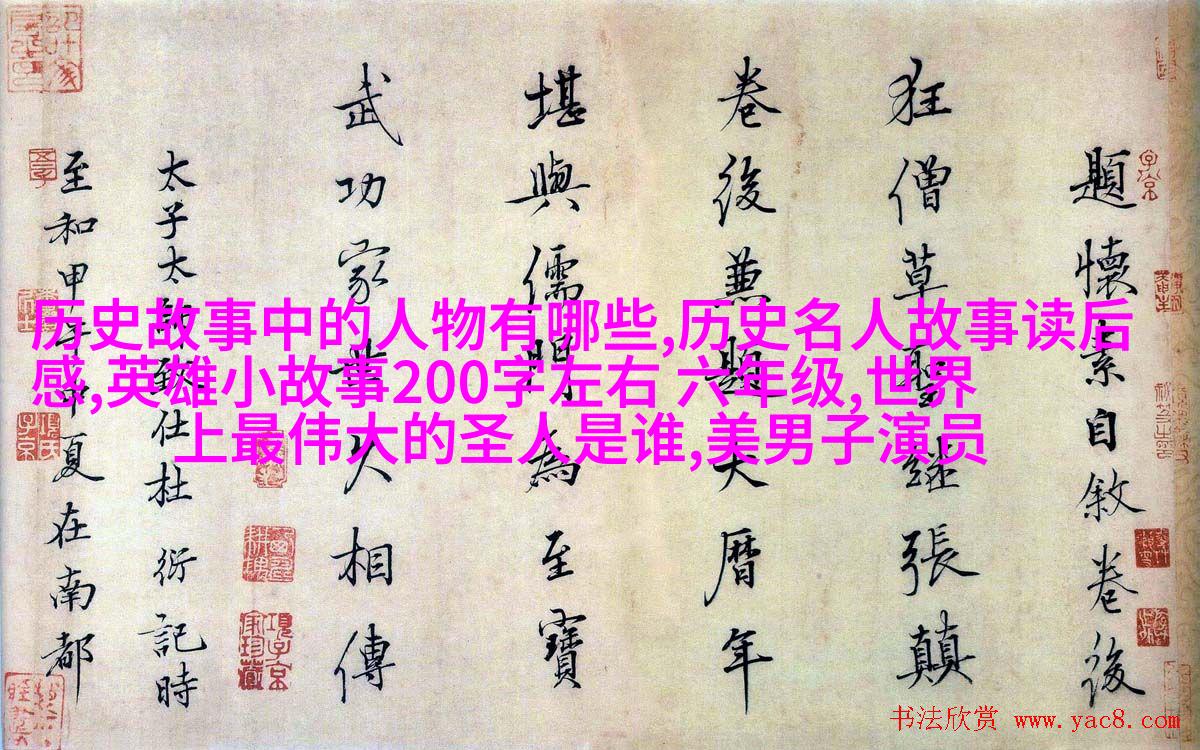 題懷素自敘卷後
狂僧草聖繼張顛
卷後兼題大曆年
堪與儒門為至寶
武功家世久相傳
太子太師致仕杜衍記時
至和甲午中夏在南都
历史故事中的人物有哪些,历史名人故事读后
感,英雄小故事200字左右 六年级,世界
上最伟大的圣人是谁,美男子演员
书法欣赏 www.yac8.com